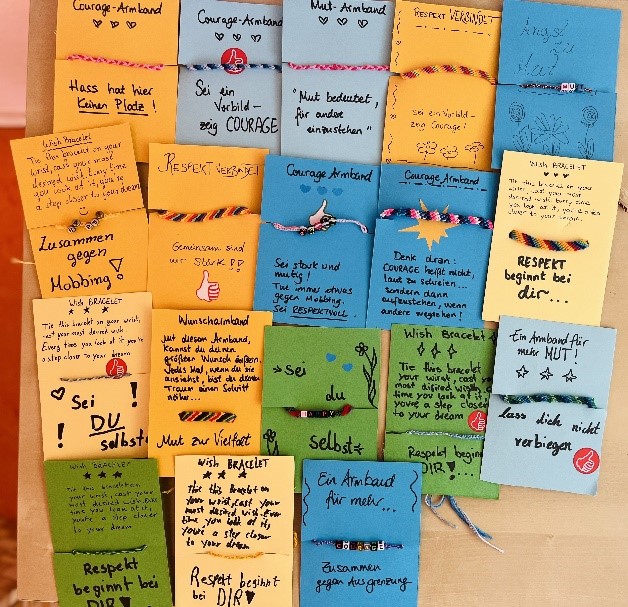 Courage-Armband
Hass hat hier
Keinen Platz!
Courage-Armband
Sei ein
Vorbild –
zeig COURAGE
Mut-Armband
"Mut bedeutet,
für andere
einzustehen"
RESPEKT VERBINDET
Sei ein Vorbild –
zeig Courage!
MU
Wish Bracelet
Tie this bracelet on your
wrist, cast your most
desired wish. Every time
you look at it, you're
a step closer to your dream
Zusammen
gegen
Mobbing!
RESPEKT VERBINDET
Gemeinsam sind
wir Stark!!
Courage Armband
Sei stark und
mutig!
Tue immer etwas
gegen Mobbing.
Sei RESPEKTVOLL
Courage Armband
Denk dran:
COURAGE heißt nicht,
laut zu schreien...
sondern dann
aufzustehen, wenn
andere wegsehen!
Wish BRACELET
Tie this bracelet on your
RESPEKT
beginnt bei
dir...
Wish BRACELET
Tie this bracelet on your wrist,
cast your most desired wish.
Every time you look at it, you're
a step closer to your dream
! Sei !
DU
selbst
Wunscharmband
Mit diesem Armband,
Kannst du deinen
größten Wunsch äußern.
Jedes Mal, wenn du sie
ansiehst, bist du deinem
Traum einen Schritt
näher...
Mut zur Vielfalt
Sei
du
HAPPY
Selbst
Wish Bracelet
Tie this bracelet
your wrist, cast
most desired wish
time you look at
you're a step closer
to your dream
Respekt beginnt
DIR!
Ein Armband für
mehr MUT!
lass dich nicht
verbiegen
Wish BRACELET
Tie this bracelet on your
wrist, cast your
most desired wish.
time you look at it,
you're a step closer
to your dream
Respekt
beginnt bei
DIR!
Wish BRACELET
Tie this Bracelet on
your wrist, cast your
most desired wish. Ever
time you look at it
you're a step closer
to your dream
Respekt beginnt
bei DIR!
Ein Armband
für mehr...
COURAGE
Zusammen
gegen Ausgrenzung